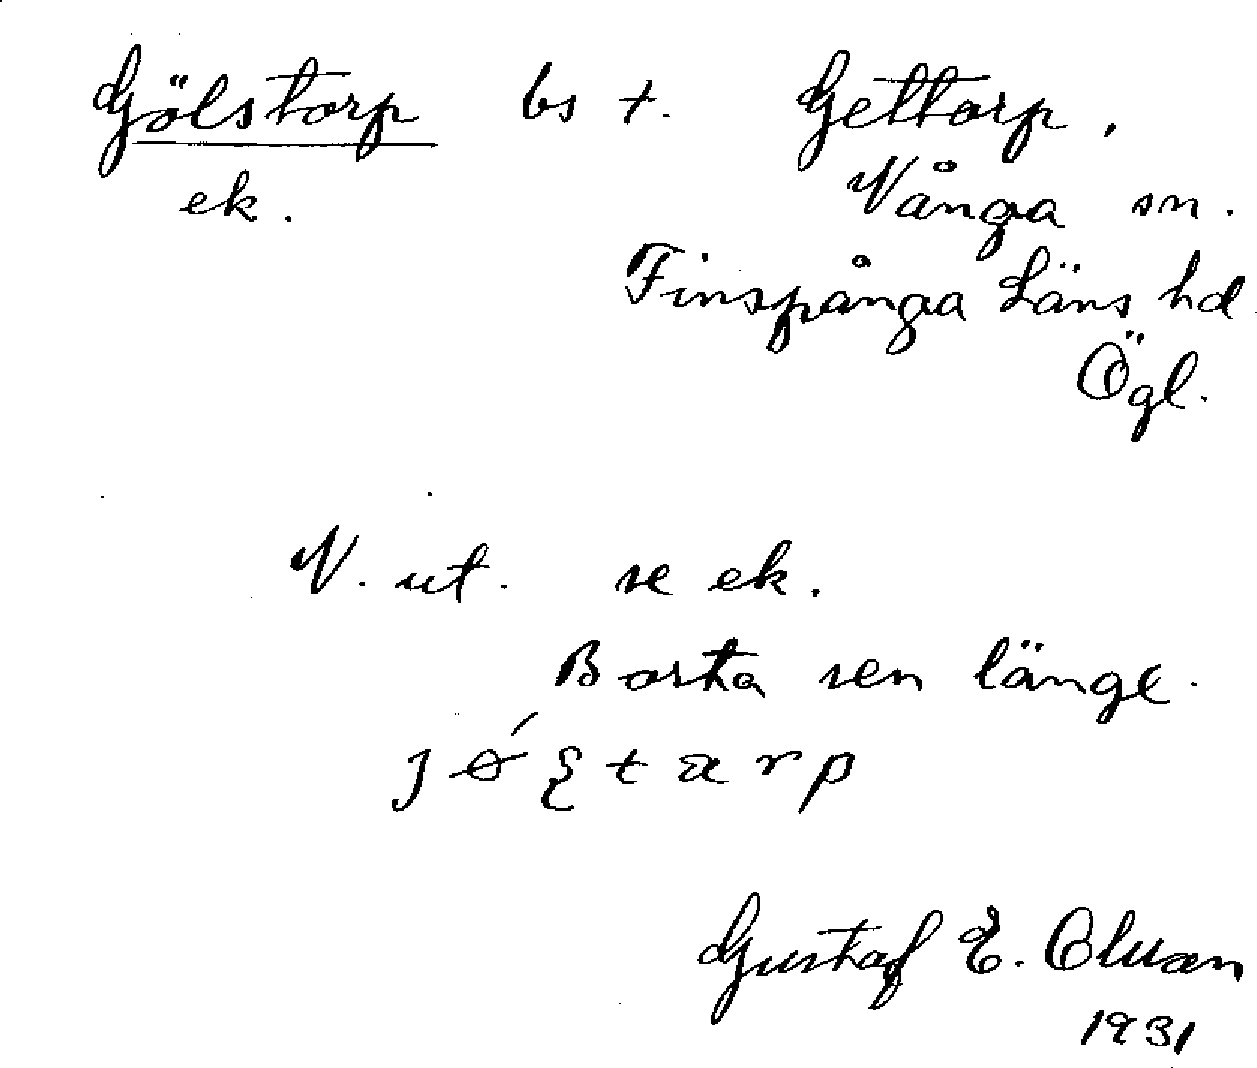 Gölstorp bs t. Gettorp,
ek. Vånga sn.
Finspånga Läns hd.
Ögl.
N. ut. se ek.
Borta sen länge.
1931